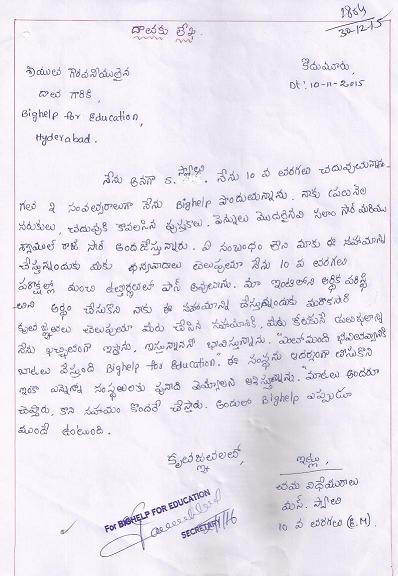 1804
30-12-15
దాతకు లేఖ
కొడుమూరు,
Dt: 10-11-2015
శ్రీయుత గౌరవనీయులైన
దాత గారికి
Bighelp for Education,
Hyderabad.
నేను అనగా S. స్వాతి. నేను 10 వ తరగతి చదువుతున్నాను.
గత 2 సంవత్సరాలుగా నేను Bighelp పొందుతున్నాను. నాకు ప్రతినెల
సరుకులు, చదువుకి కావలసిన పుస్తకాలు. పెన్నులు మొదలైనవి సలాం సార్ మరియు
రాజ్ సార్ అందజేస్తున్నారు. ఏ సంబంధం లేని మాకు ఈ సహాయాన్ని
చేస్తున్నందుకు మీకు ధన్యవాదాలు తెలుపుతూ నేను 10 వ తరగతి
పరీక్షల్లో మంచి ఉత్తీర్ణతలో పాస్ అవుతాను. మా ఇంటిలోని ఆర్థిక పరిస్థి
తిని అర్థం చేసుకొని నాకు ఈ సహాయాన్ని చేస్తున్నందుకు మరొకసారి
కృతజ్ఞతలు తెలుపుతూ మీరు చేసిన సహాయానికి, మీకు
నేను ఖచ్చితంగా ఇస్తాను. ఇస్తున్నానని భావిస్తున్నాను. "ఎంతోమంది భవిష్యత్తుకి
బాటలు వేస్తుంది Bighelp for Education". ఈ సంస్థను ఆదర్శంగా తీసుకొని
ఇంకా ఎన్నెన్నో సంస్థలుకు పునాది వెయ్యాలని ఆశిస్తున్నాను. "మాటలు అందరూ
చెప్తారు, కాని సహాయం కొందరే చేస్తారు. అందులో Bighelp ఎప్పుడూ
ముందే ఉంటుంది.
కృతజ్ఞతలతో,
ఇట్లు,
తమ విధేయురాలు
యస్. స్వాతి
10 వ తరగతి (E.M).
For BIGHELP FOR EDUCATION
SECRETARY